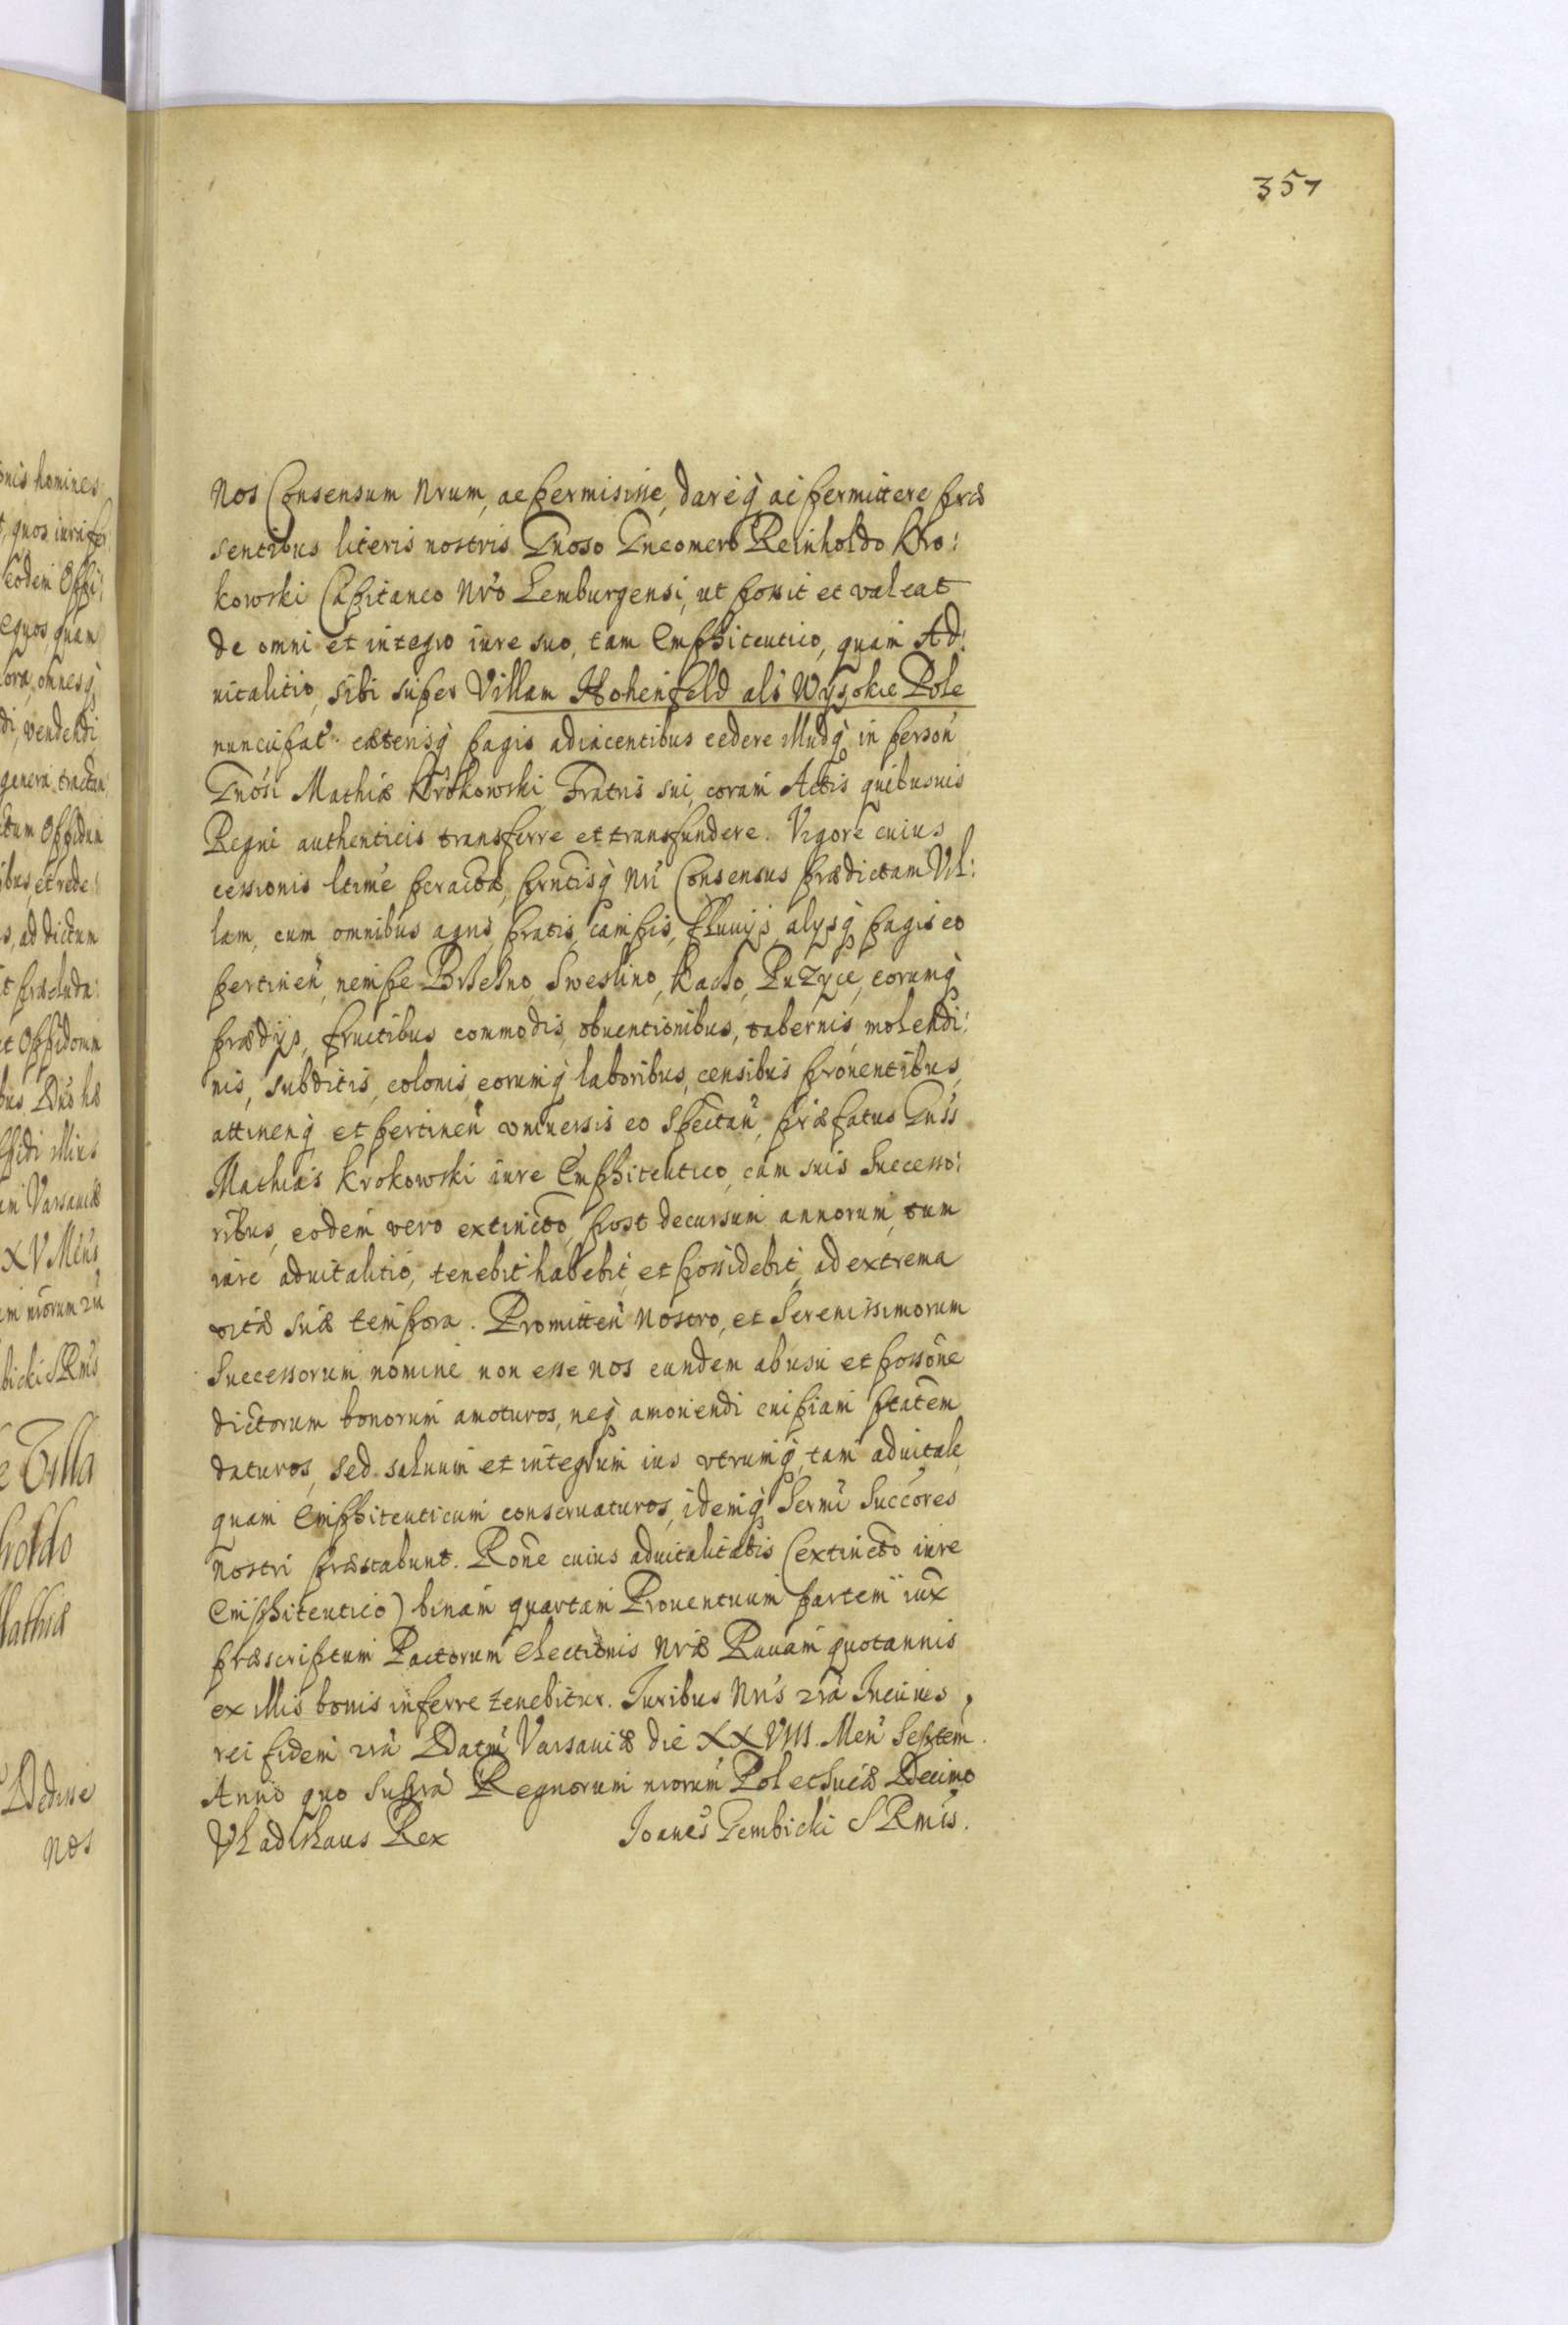 357
Nos Consensum Nrum, ac permisisse, dareq ac permittere præ
sentibus literis nostris Gnoso Gneomero Reinholdo Kro:
kowski Capitaneo Nro Lemburgensi, ut possit et valeat
de omni et integro iure suo, tam Emphiteutico, quam Ad:
vitalitio, sibi super Villam Hohenfeld als Wysokie Pole
nuncupat cæterisq pagis adiacentibus cedere illudq in person
Gnosi Mathiæ Krokowski Fratris sui, coram Actis quibusuis
Regni authenticis transferre et transfundere. Vigore cuius
cessionis ltime peractæ, prntisq Nri Consensus prædictam Vil:
lam, cum omnibus agris, pratis, campis, fluuijs, alysq pagis eo
pertinen, nempe Sweslino, Puzyce, eorumq
prædijs, fructibus commodis, obuentionibus, tabernis, molendi:
nis, subditis, colonis, eorumq laboribus, censibus prouentibus,
attinenq et pertinen vniuersis eo spectan, præfatus Gnss
Mathias Krokowski iure Emphiteutico, cum suis Successo:
ribus, eodem vero extincto, post decursum annorum, tum
iure aduitalitio, tenebit habebit, et possidebit, ad extrema
vitæ suæ tempora. Promitten nostro, et Serenissimorum
Successorum nomine non esse nos eundem ab usu et possone
dictorum bonorum amoturos, neq amouendi cuipiam ptatem
daturos, sed saluum et integrum ius vtrumq, tam aduitale,
quam Emphiteuticum conseruaturos, idemq Sermi Succores
nostri præstabunt. Rone cuius aduitalitatis (extincto iure
Emphiteutico) binam quartam Prouentuum partem iux
præscriptum Pactorum electionis Nræ Rauam quotannis
ex illis bonis inferre tenebitur. Juribus Nris
rei fidem Datm Varsauiæ die XXVIII. Men Septem.
Anno quo supra Regnorum nrorum Pol et Suæ Decimo
Vladislaus Rex Joanes Gembicki S Rmis.
onis homines
, quos iurisper
eodem Oppi:
equos, quam
lora, omnesq
di, vendendi
genera, tractan:
ctum Oppidum
ibus, et rede
s, ad dictum
t præcluda:
et Oppidum
bus Dns hæ
ppidi illius
em Varsauiæ
XV Mens
em nrorum
bicki S Rmis
e Villa
holdo
Mathiæ
Dedisse
nos